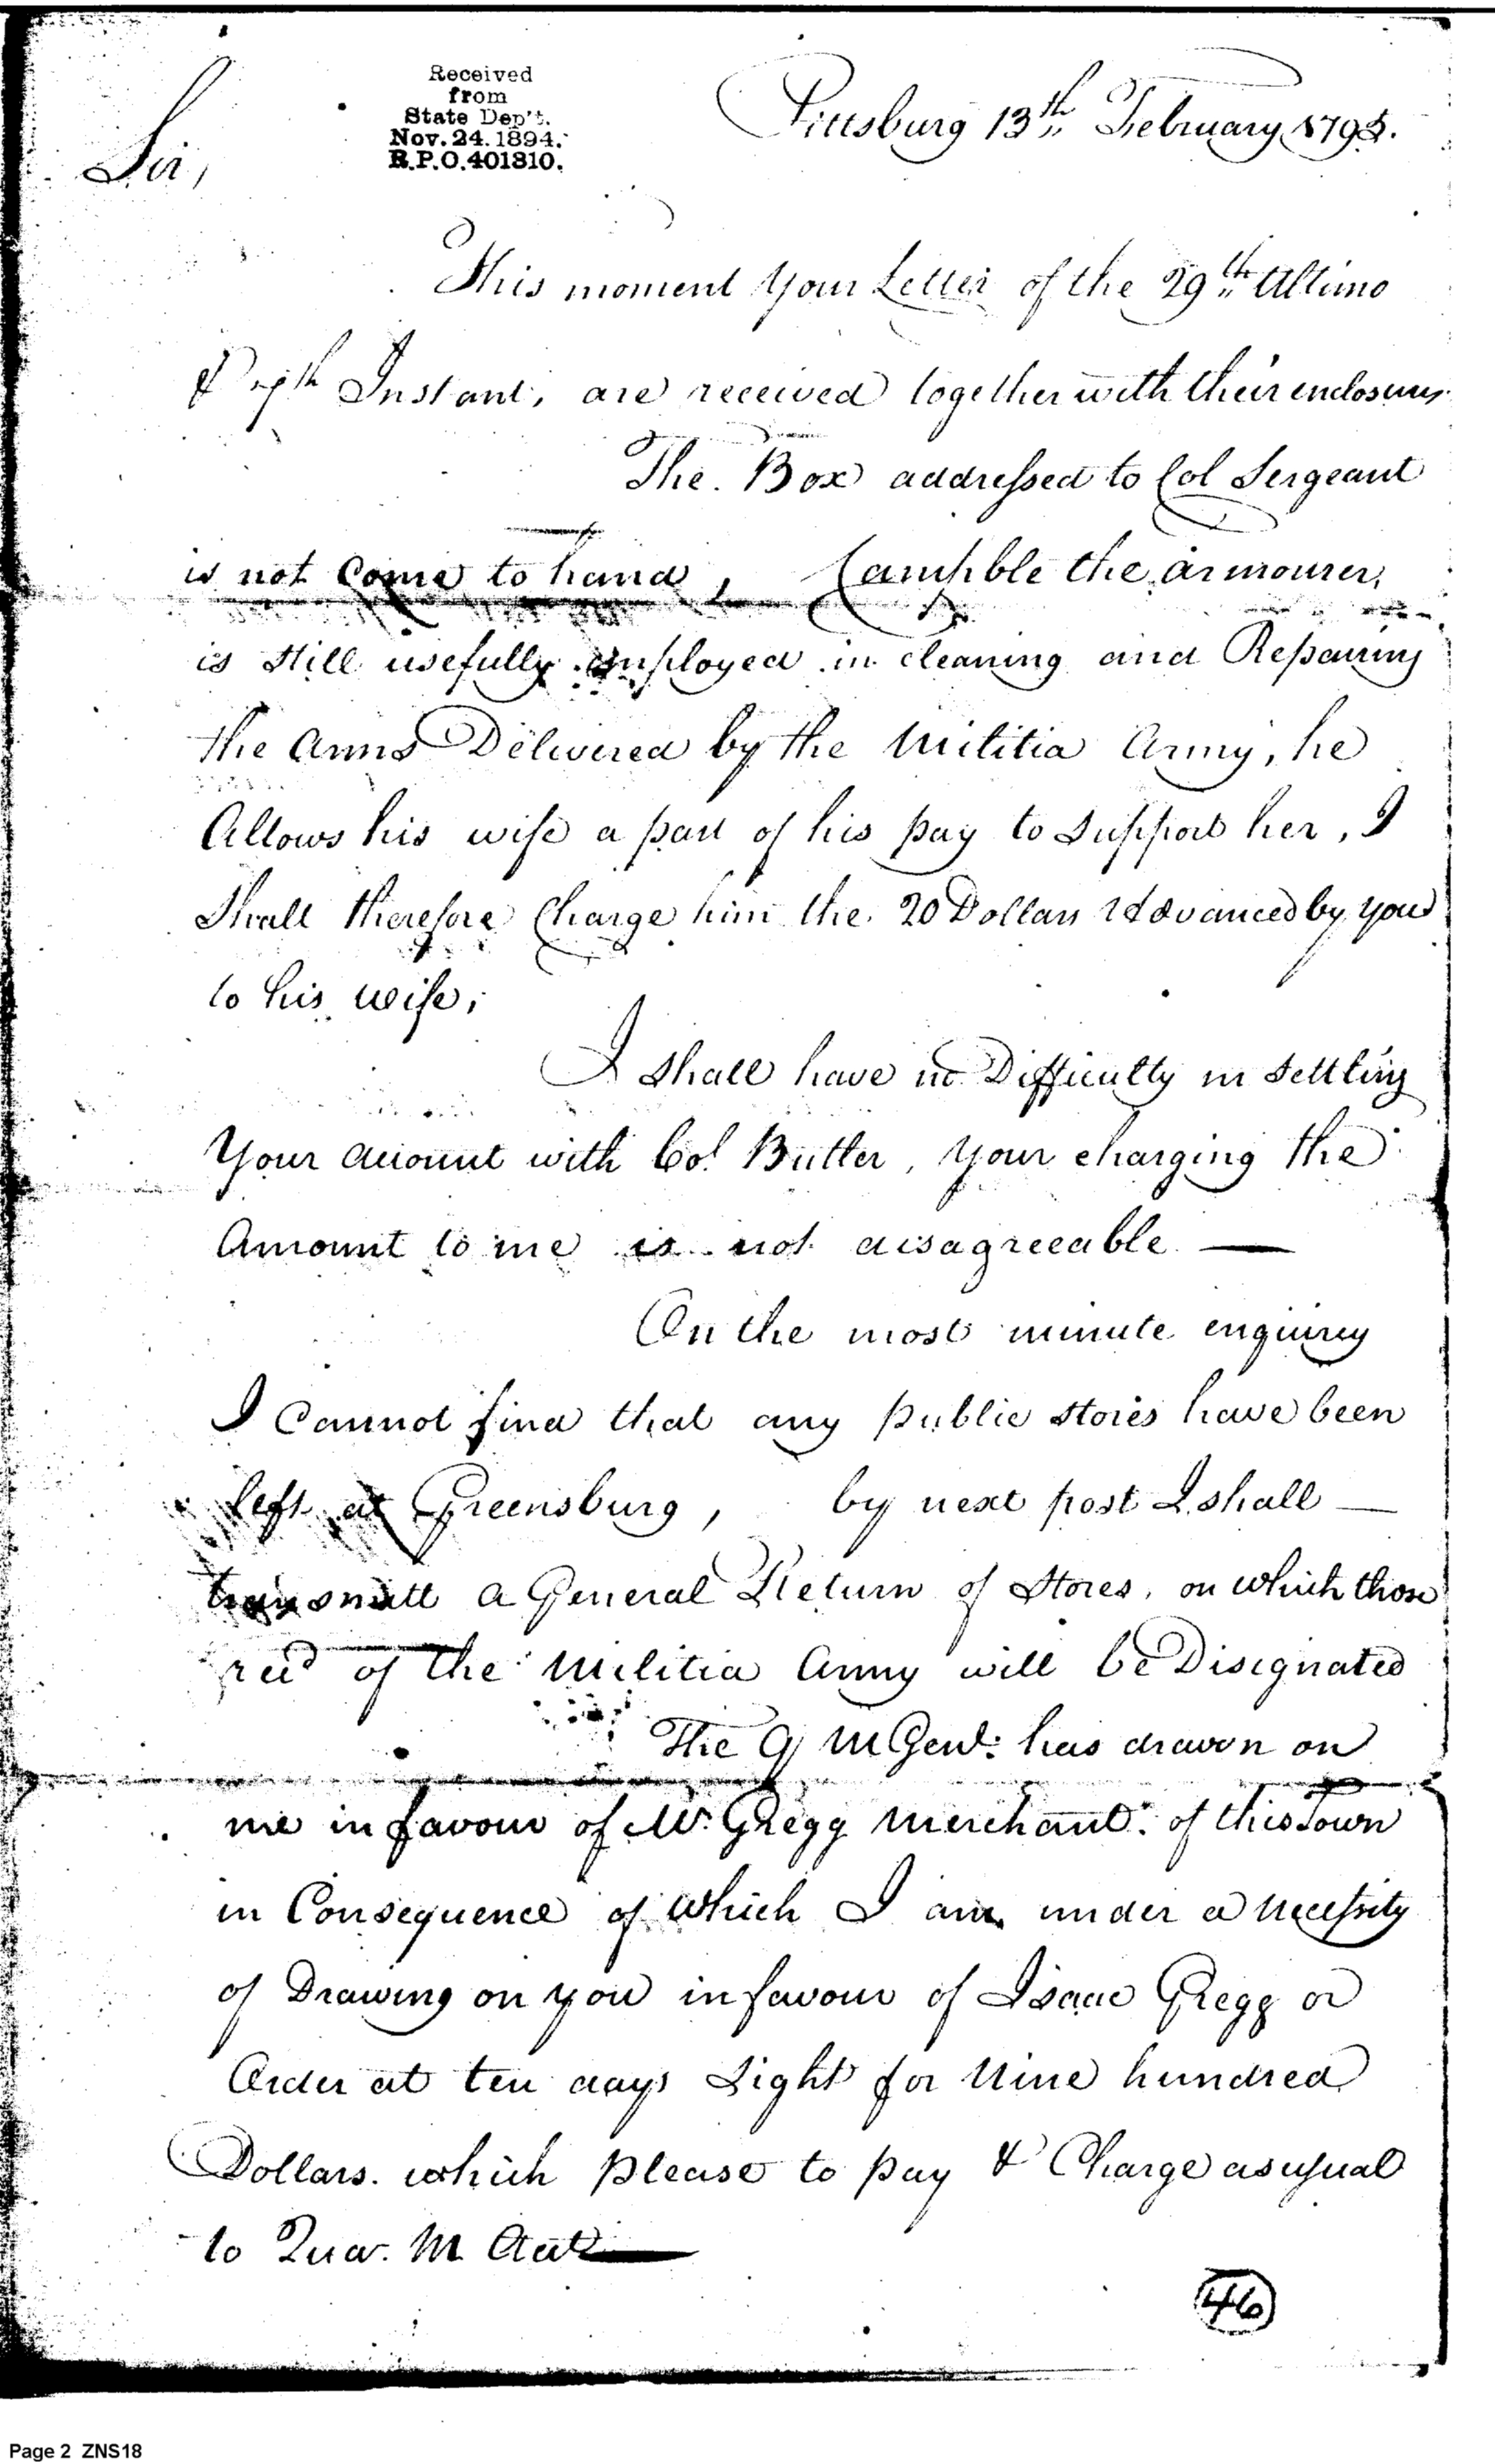 Received
from
State Dep't.
Nov. 24. 1894.
R.P.O. 401810.
Pittsburg 13th February 1795.
Sir,
This moment your Letter of the 29th Ultimo
& Instant, are received together with their enclosures
The Box addressed to Col Sergeant
is not Come to hand, the armourer,
is still usefully employed in cleaning and Repairing
the Arms Delivered by the Militia Army, he
Allows his wife a part of his pay to support her, I
Shall therefore Charge him the 20 Dollars Advanced by you
to his wife;
I shall have no Difficulty in settling
Your account with Col. Butler, your charging the
Amount to me is not disagreeable —
On the most minute enquirey
I Cannot find that any public stores have been
left at Greensburg, by next post I shall —
transmitt a General Return of Stores, on which those
recd of the Militia Army will be Disignated
The Q M Genl: has drawn on
me in favour of Mr. Gregg Merchant of this Town
in Consequence of which I am under a necessity
of Drawing on you in favour of Isaac Gregg or
Order at ten days Sight for Nine hundred
Dollars. which please to pay & Charge as usual
to Quar. M
46
Page 2 ZNS18